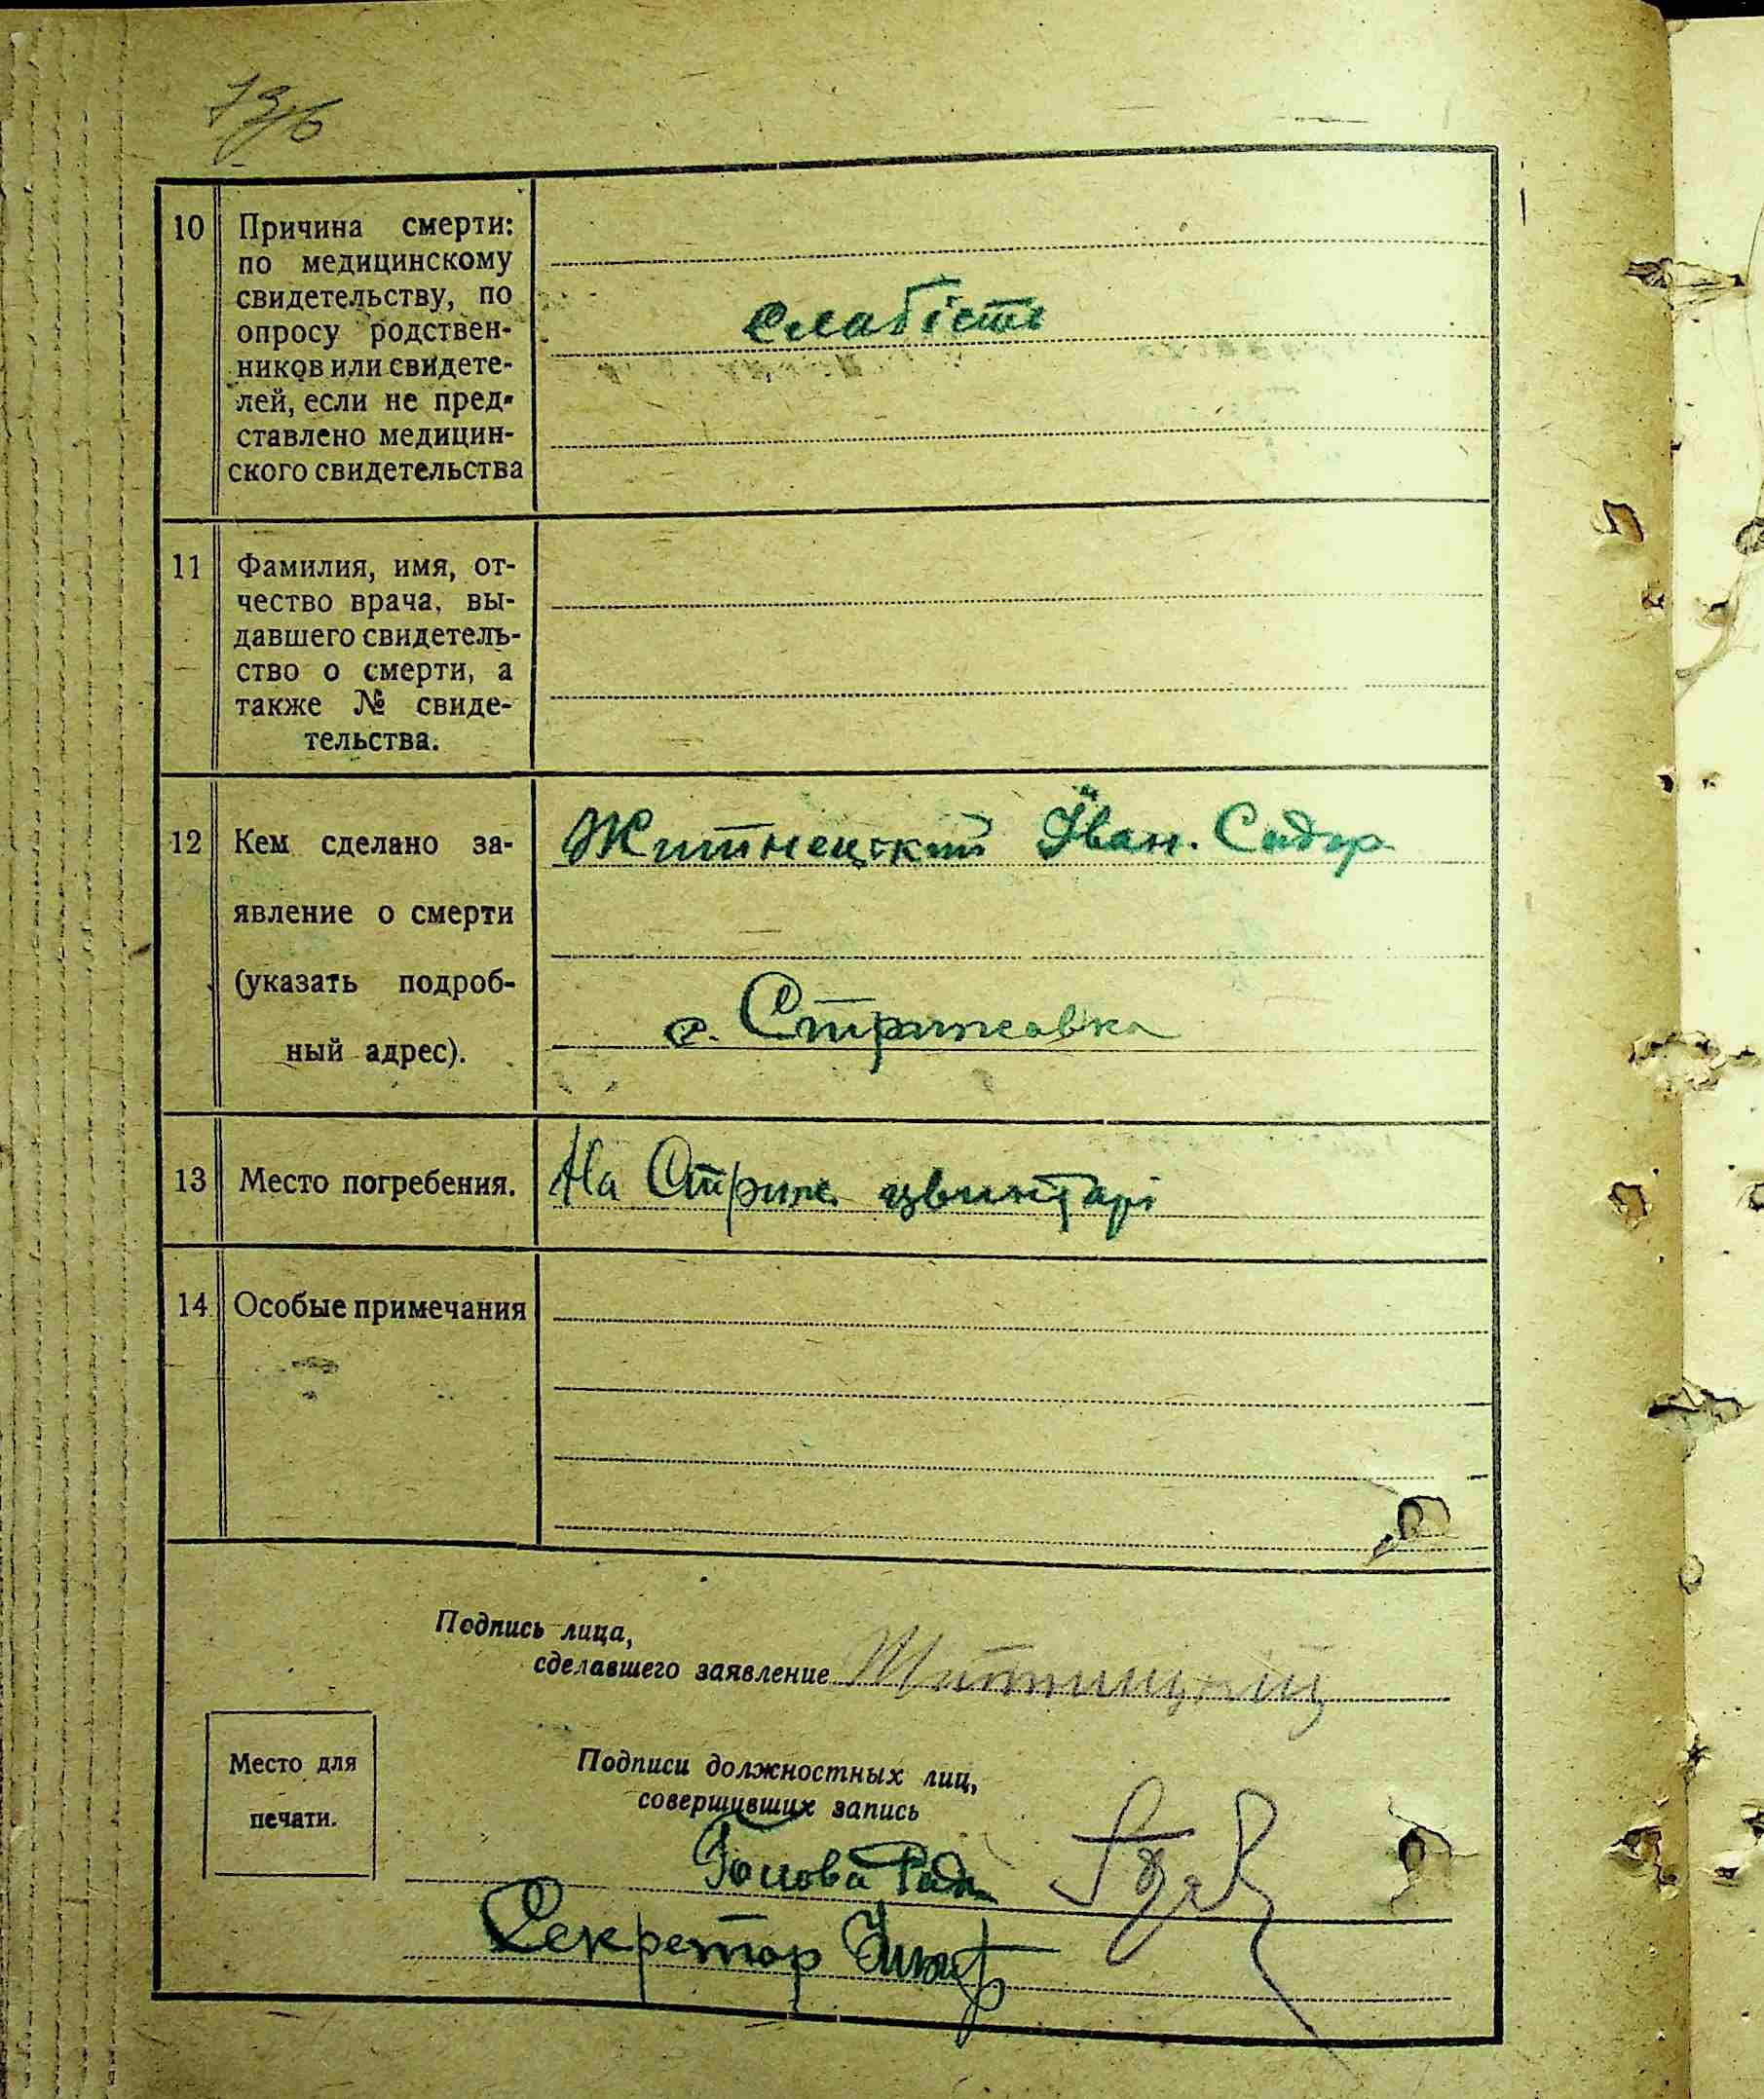 10 Причина смерти:
по медицинскому
свидетельству, по
опросу родствен-
ников или свидете-
лей, если не пред-
ставлено медицин-
ского свидетельства
слабість
11 Фамилия, имя, от-
чество врача, вы-
давшего свидетель-
ство о смерти, а
также № свиде-
тельства.
12 Кем сделано за-
явление о смерти
(указать подроб-
ный адрес).
Житнецкий Іван. Сидор
с. Стрижавка
13 Место погребения.
На Стриж. цвинтарі
14 Особые примечания
Подпись лица,
сделавшего заявление
Место для
печати.
Подписи должностных лиц,
совершивших запись
Голова Ради
Секретор